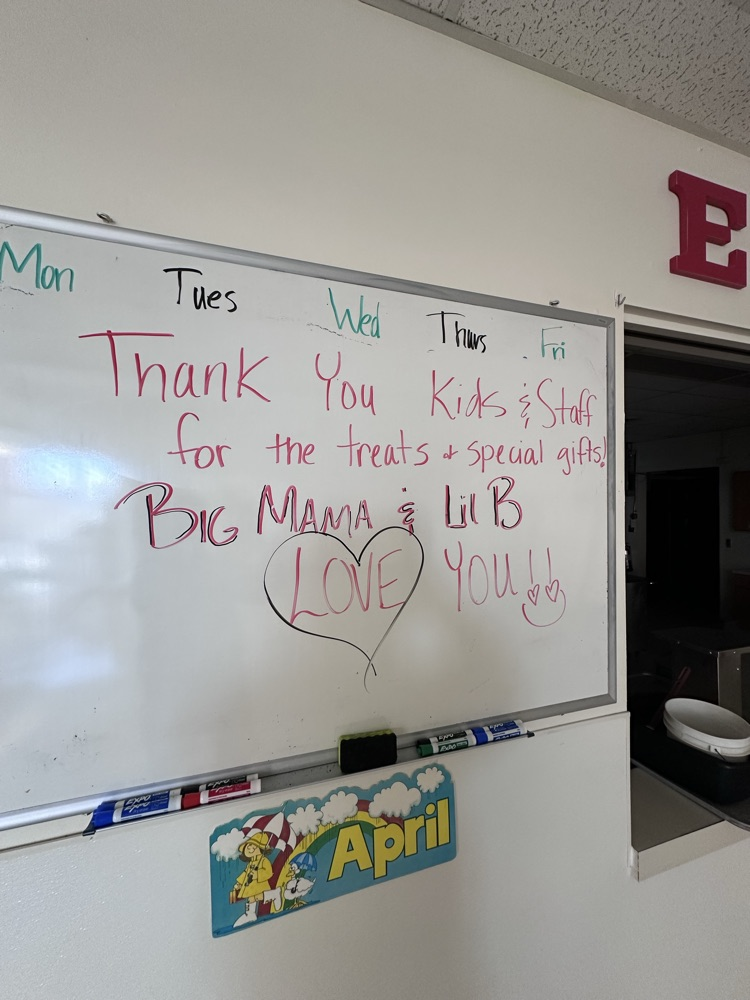 E
Mon Tues Wed Thurs Fri
Thank You Kids & Staff
for the treats & special gifts!
BIG MAMA & Lil B
LOVE YOU!!
EXPO EXPO
EXPO
EXPO
EXPO
April